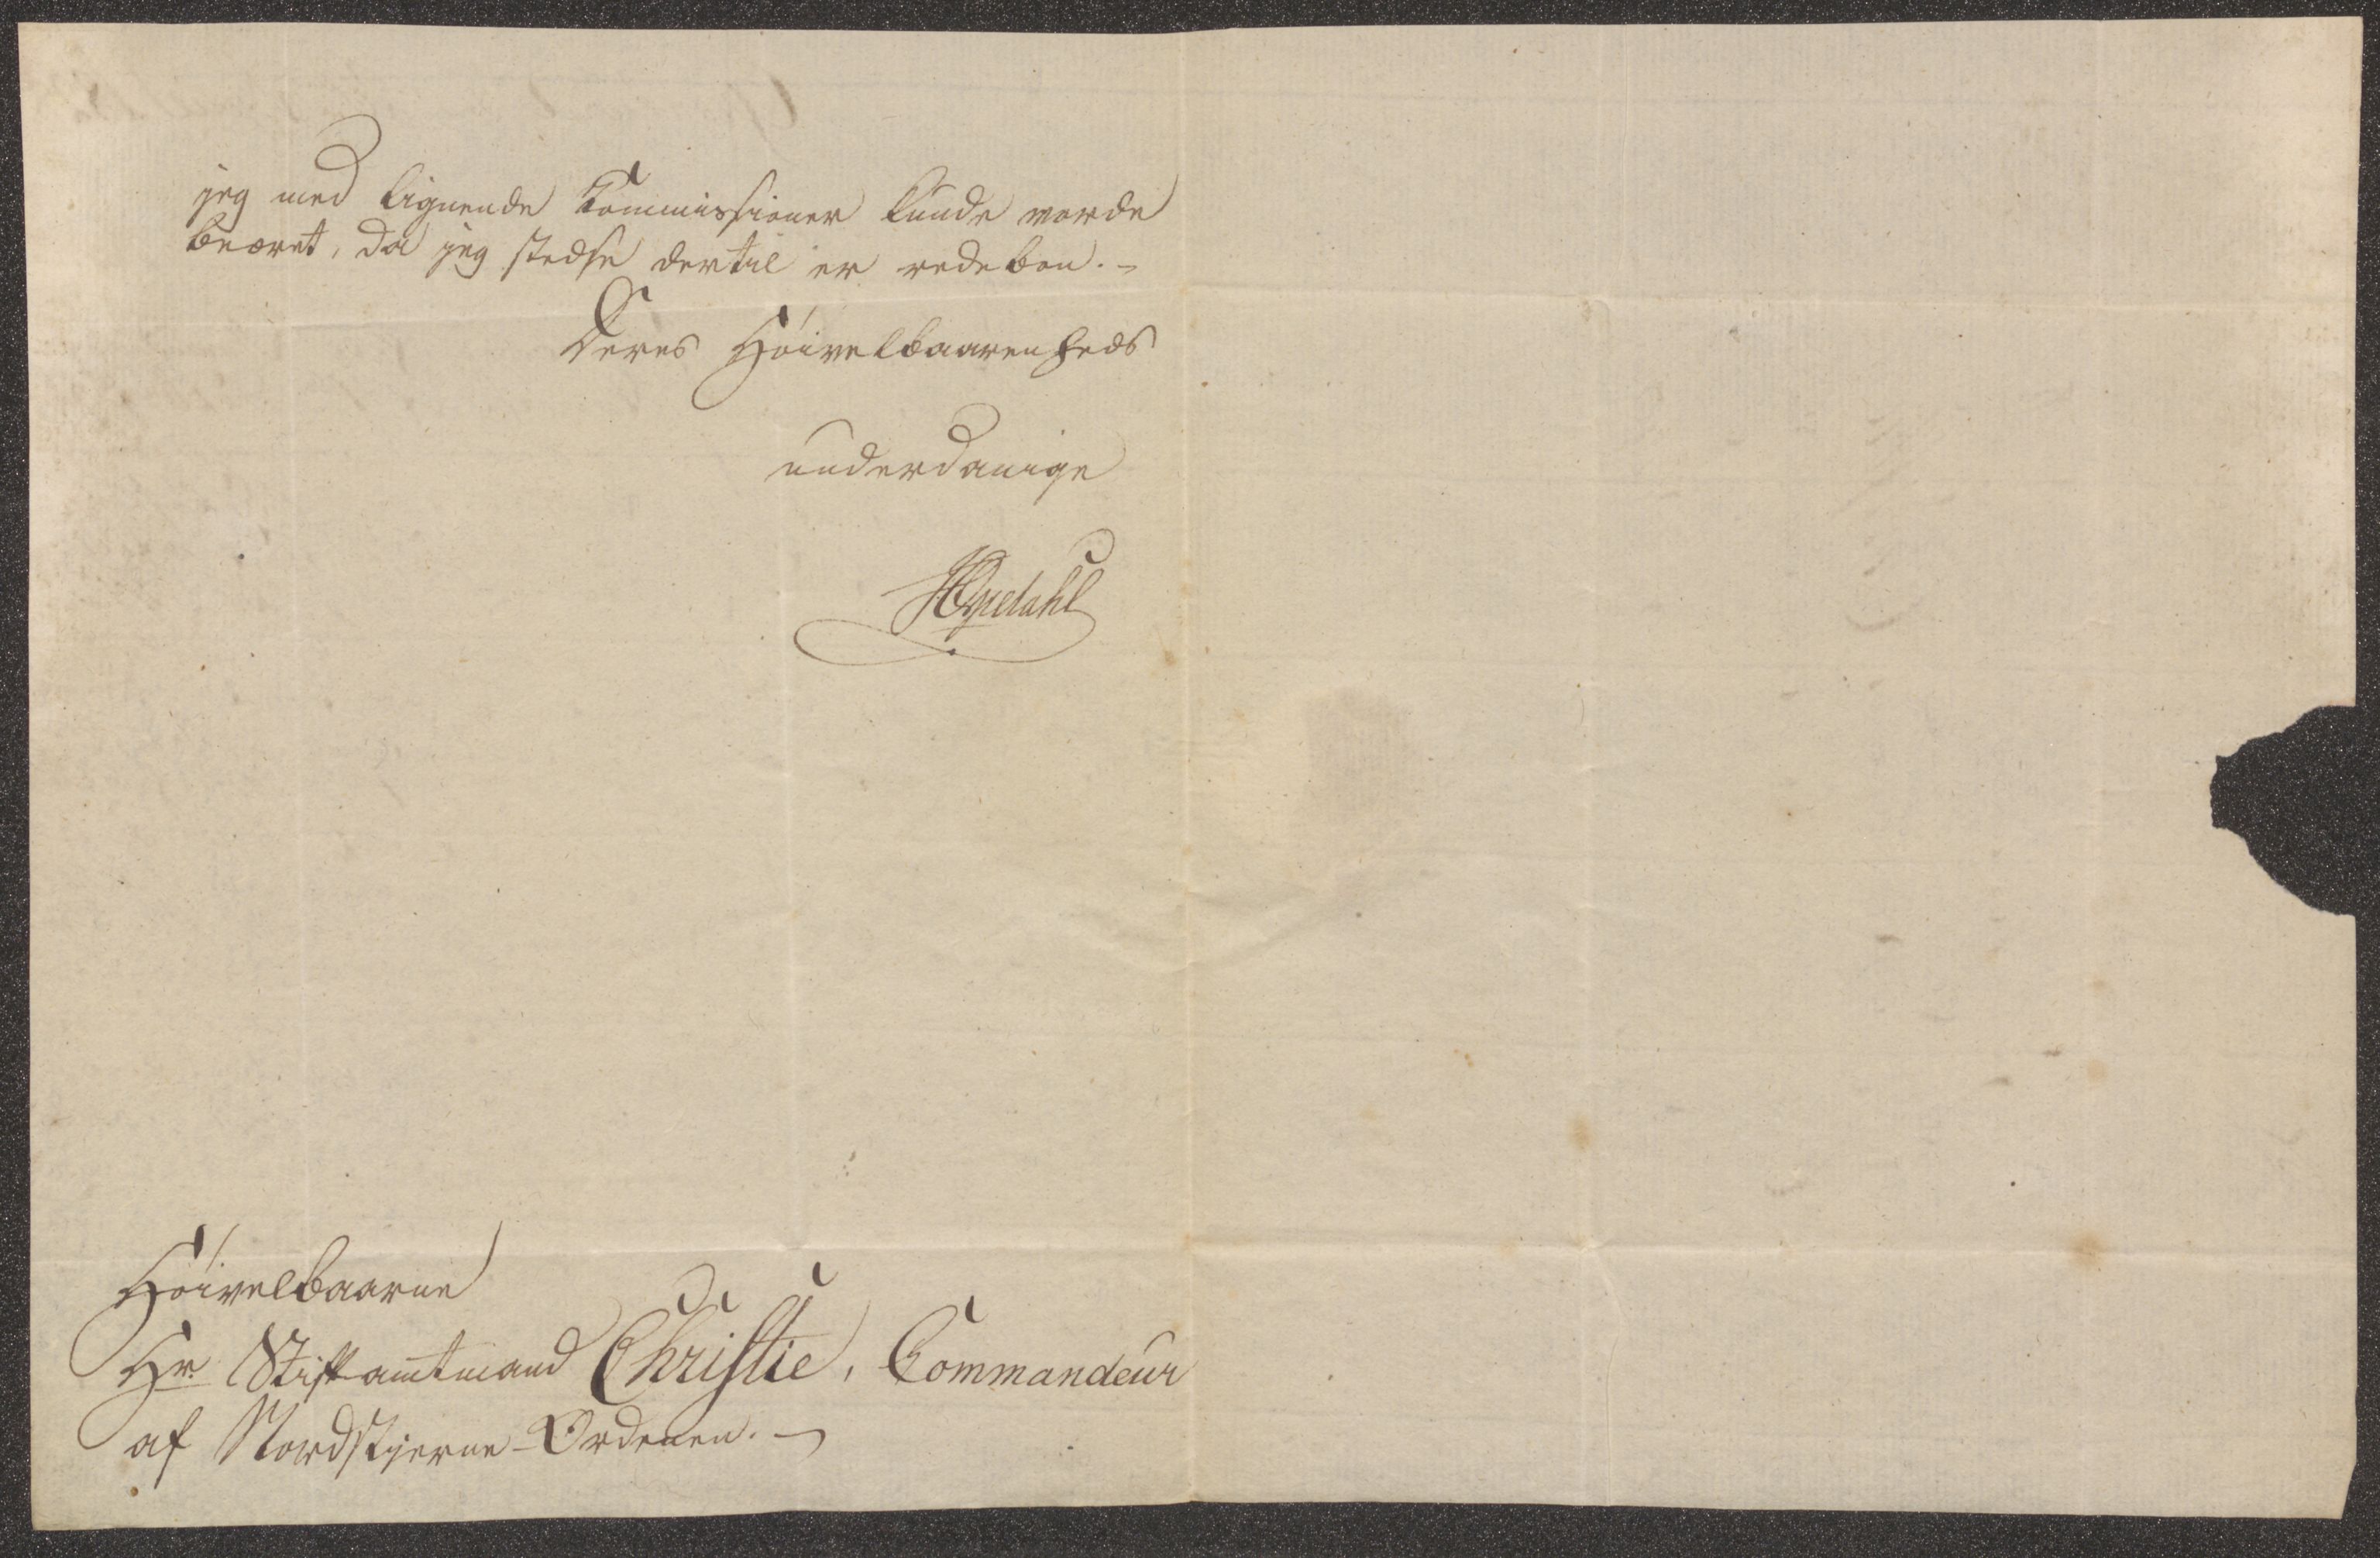 jeg med lignende Kommissioner kunde vorde
beæret, da jeg stedse dertil er redebon. –
Deres Høivelbaarenheds
underdanige
HOpdahl
Høivelbaarne
Hr. Stiftamtmand Christie, Commandeur
af Nordstjerne-Ordenen. –